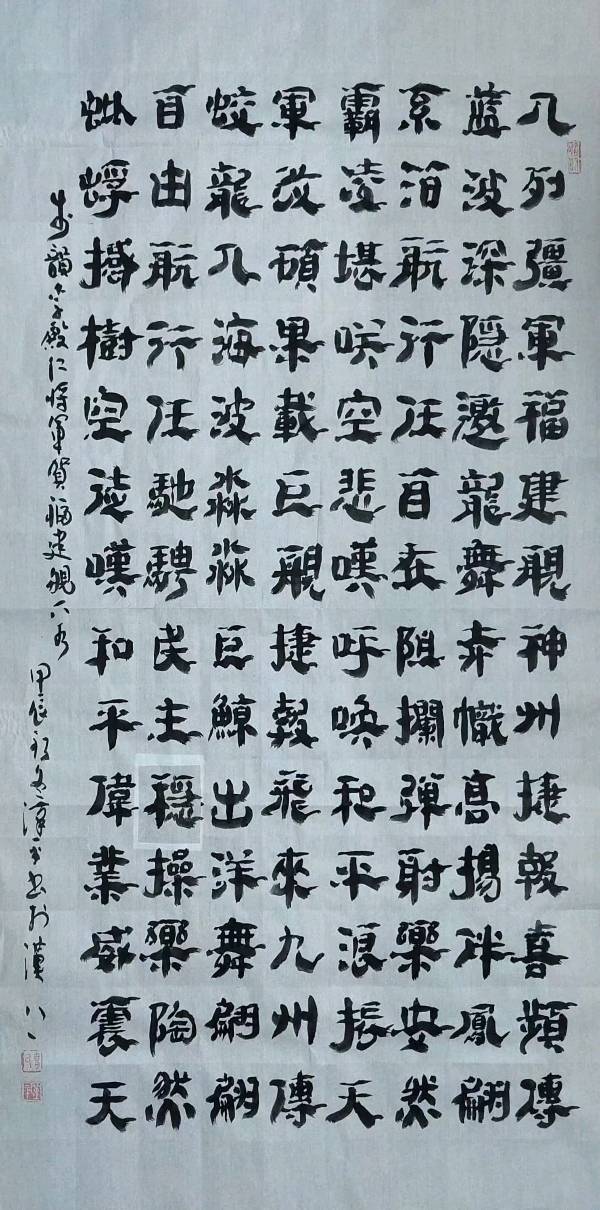 入列彊軍福建艦神州捷報喜頻傳
藍波深隱邀龍舞赤幟高揚伴鳳翩
系泊航行任自在阻攔彈射樂安然
霸凌堪咲空悲嘆呼喚和平浪振天
軍改碩果載巨艦捷報飛來九州傳
蛟龍入海波淼淼巨鯨出洋舞翩翩
自由航行任馳騁民主穩操樂陶然
蚍蜉撼樹空徒嘆和平偉業威震天
步韻李殿仁將軍賀福建艦下水
甲辰初冬澤平書於漢